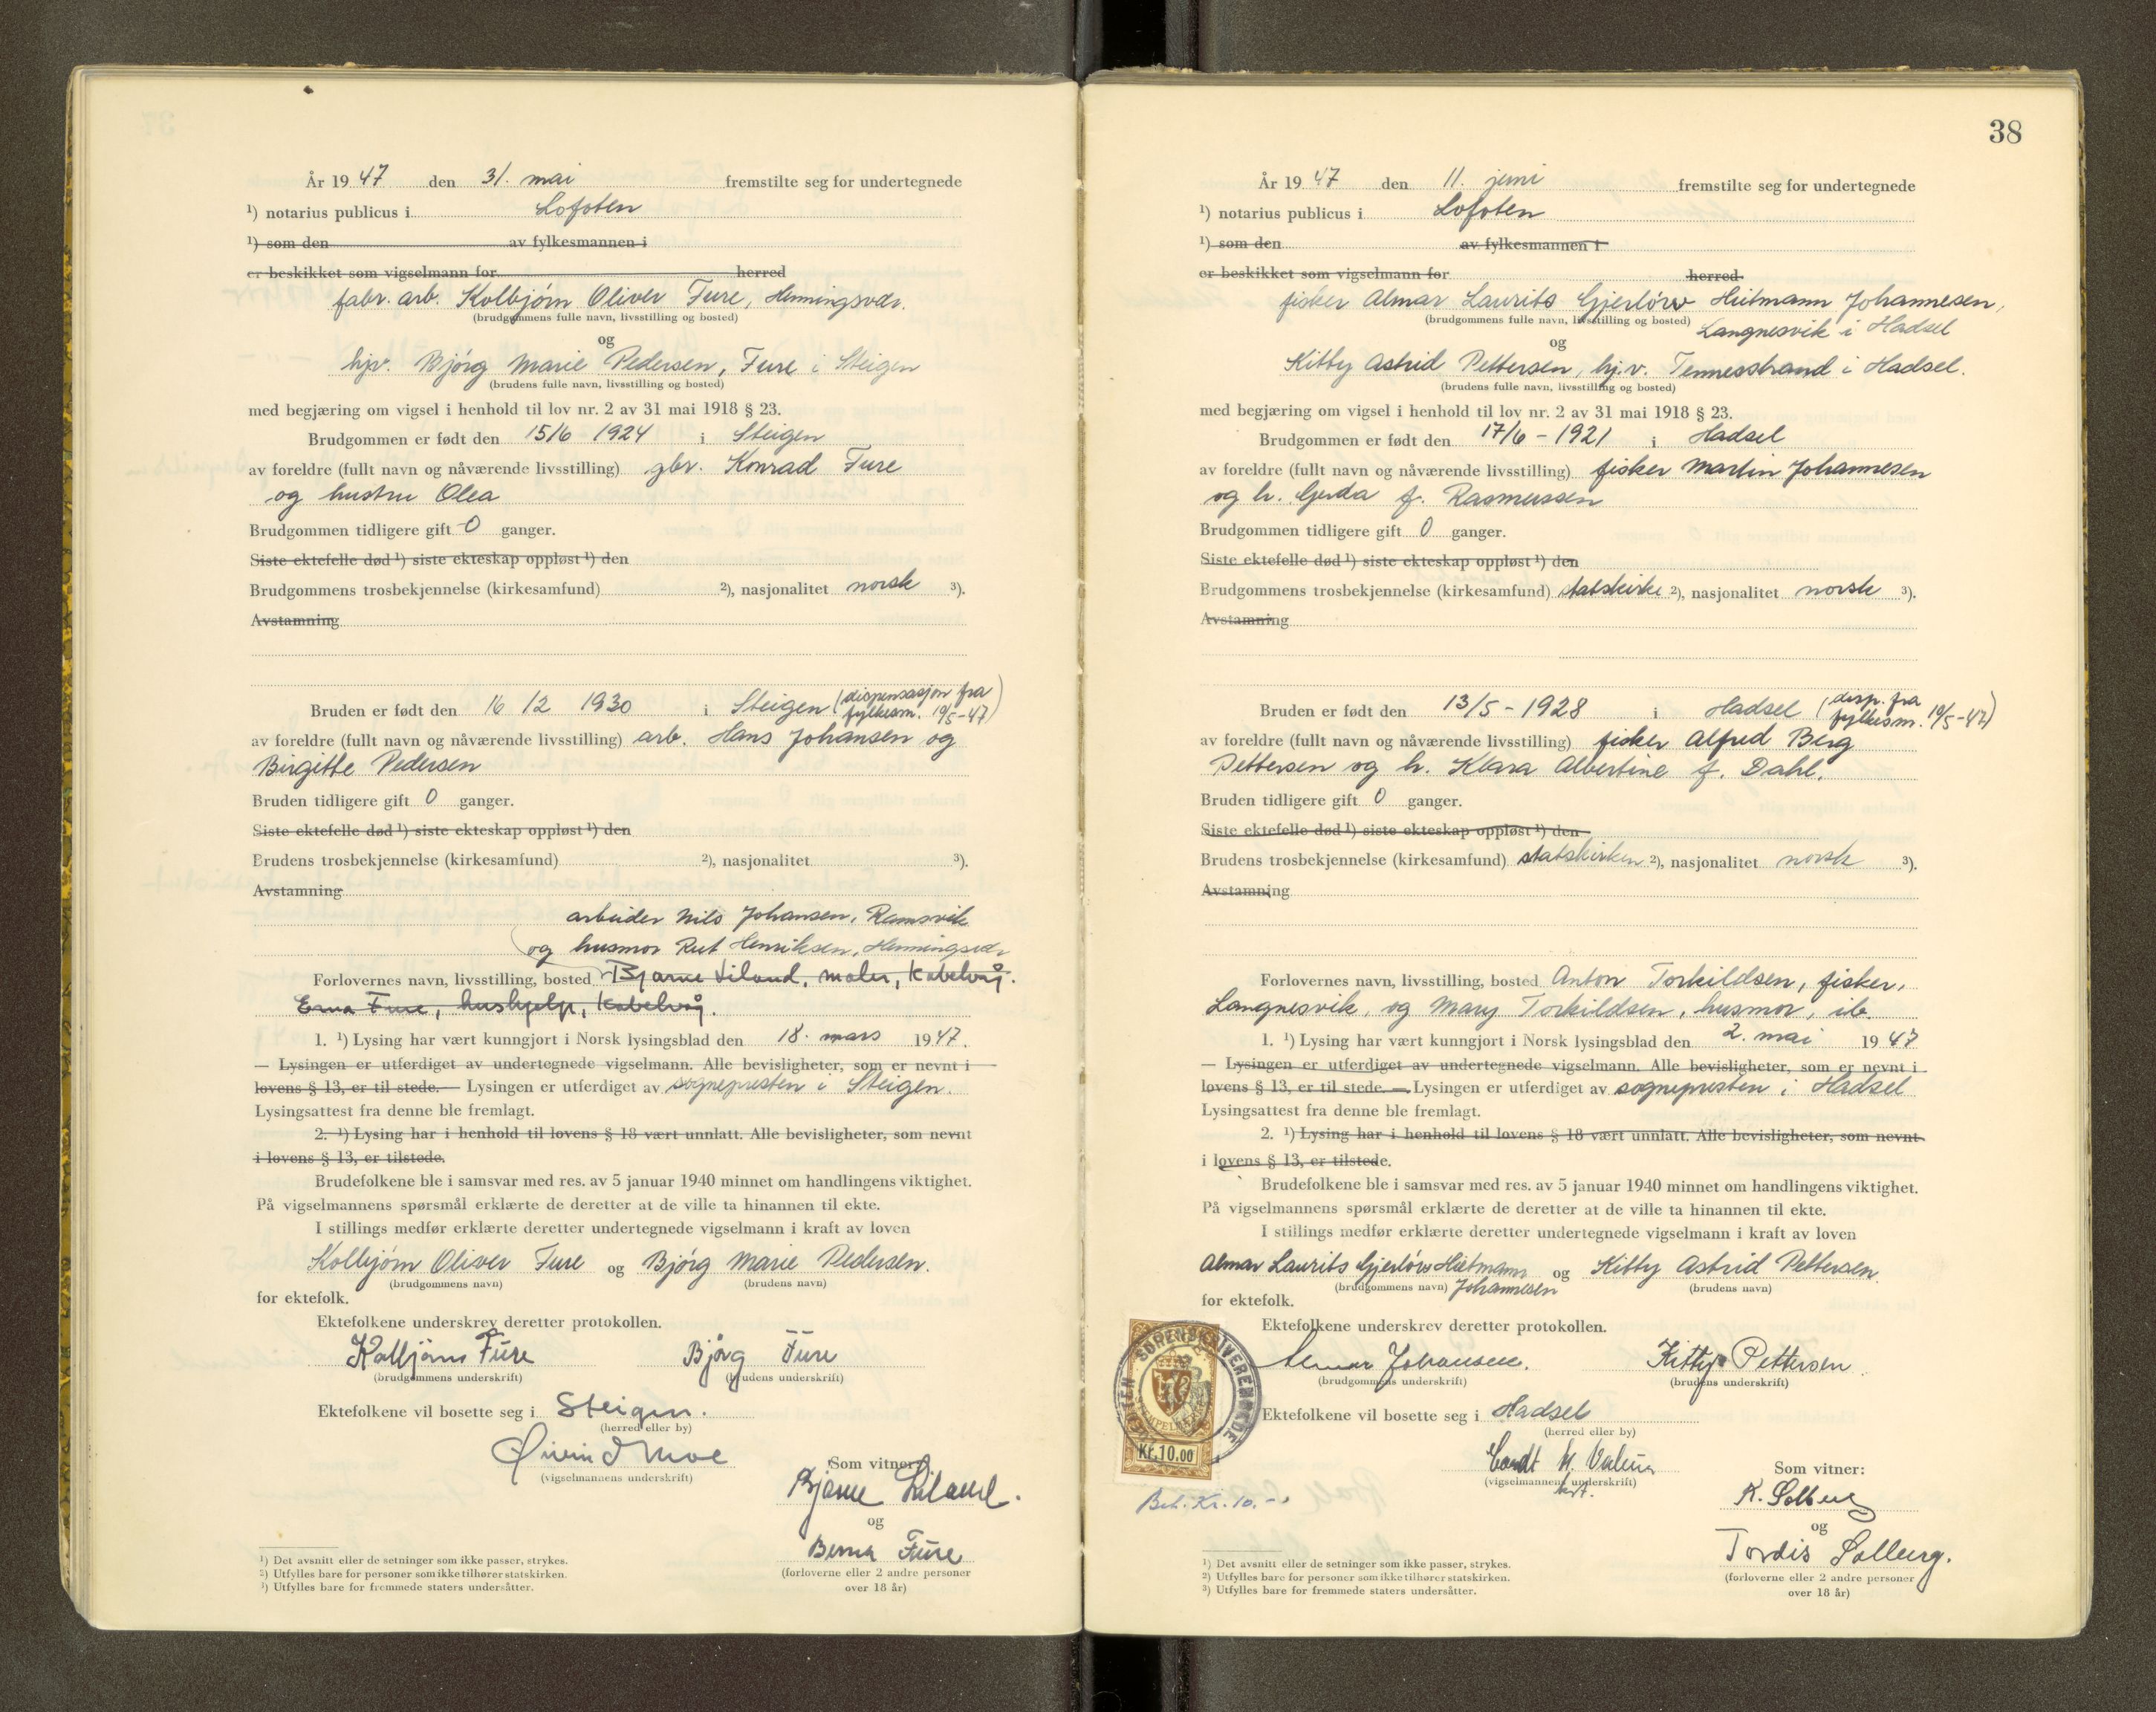 År 1947 den 31. mai fremstilte seg for undertegnede
¹) notarius publicus i Lofoten
¹) som den av fylkesmannen i
er beskikket som vigselmann for herred
fabr. arb. Kolbjørn Oliver Fure, Henningsvær.
(brudgommens fulle navn, livsstilling og bosted)
og
hjv. Bjørg Marie Pedersen, Fure i Steigen
(brudens fulle navn, livsstilling og bosted)
med begjæring om vigsel i henhold til lov nr. 2 av 31 mai 1918 § 23.
Brudgommen er født den 15/6 1924 i Steigen
av foreldre (fullt navn og nåværende livsstilling) gbr. Konrad Fure
og hustru Olea
Brudgommen tidligere gift 0 ganger.
Siste ektefelle død ¹) siste ekteskap oppløst ¹) den
Brudgommens trosbekjennelse (kirkesamfund) ²), nasjonalitet norsk ³).
Avstamning
Bruden er født den 16 12 1930 i Steigen (dispensasjon fra
fylkesm. 19/5-47)
av foreldre (fullt navn og nåværende livsstilling) arb. Hans Johansen og
Birgitte Pedersen
Bruden tidligere gift 0 ganger.
Siste ektefelle død ¹) siste ekteskap oppløst ¹) den
Brudens trosbekjennelse (kirkesamfund) ²), nasjonalitet ³).
Avstamning
arbeider Nils Johansen, Ramsvik
og husmor Rut Henriksen, Henningsvær
Forlovernes navn, livsstilling, bosted Bjarne Liland, maler, Kabelvåg.
Erna Fure, hushjelp, Kabelvåg.
1. ¹) Lysing har vært kunngjort i Norsk lysingsblad den 18. mars 1947.
— Lysingen er utferdiget av undertegnede vigselmann. Alle bevisligheter, som er nevnt i
lovens § 13, er til stede. — Lysingen er utferdiget av sognepresten i Steigen.
Lysingsattest fra denne ble fremlagt.
2. ¹) Lysing har i henhold til lovens § 18 vært unnlatt. Alle bevisligheter, som nevnt
i lovens § 13, er tilstede.
Brudefolkene ble i samsvar med res. av 5 januar 1940 minnet om handlingens viktighet.
På vigselmannens spørsmål erklærte de deretter at de ville ta hinannen til ekte.
I stillings medfør erklærte deretter undertegnede vigselmann i kraft av loven
Kolbjørn Oliver Fure og Bjørg Marie Pedersen.
(brudgommens navn) (brudens navn)
for ektefolk.
Ektefolkene underskrev deretter protokollen.
Kolbjørn Fure Bjørg Fure
(brudgommens underskrift) (brudens underskrift)
Ektefolkene vil bosette seg i Steigen.
(herred eller by)
Øivind Moe
(vigselmannens underskrift)
Som vitner:
Bjarne Liland.
og
Fure
(forloverne eller 2 andre personer
over 18 år)
¹) Det avsnitt eller de setninger som ikke passer, strykes.
²) Utfylles bare for personer som ikke tilhører statskirken.
³) Utfylles bare for fremmede staters undersåtter.
38
År 1947 den 11. juni fremstilte seg for undertegnede
¹) notarius publicus i Lofoten
¹) som den av fylkesmannen i
er beskikket som vigselmann for herred
fisker Almar Laurits Gjerløw Hutmann Johannesen,
(brudgommens fulle navn, livsstilling og bosted) Langnesvik i Hadsel
og
Kitty Astrid Pettersen, hj.v. Tennesstrand i Hadsel.
(brudens fulle navn, livsstilling og bosted)
med begjæring om vigsel i henhold til lov nr. 2 av 31 mai 1918 § 23.
Brudgommen er født den 17/6 - 1921 i Hadsel
av foreldre (fullt navn og nåværende livsstilling) fisker Martin Johannesen
og h. Gerda f. Rasmussen
Brudgommen tidligere gift 0 ganger.
Siste ektefelle død ¹) siste ekteskap oppløst ¹) den
Brudgommens trosbekjennelse (kirkesamfund) statskirke ²), nasjonalitet norsk ³).
Avstamning
Bruden er født den 13/5 - 1928 i Hadsel (disp. fra
fylkesm. 19/5-47)
av foreldre (fullt navn og nåværende livsstilling) fisker Alfred Berg
Pettersen og h. Klara Albertine f. Dahl.
Bruden tidligere gift 0 ganger.
Siste ektefelle død ¹) siste ekteskap oppløst ¹) den
Brudens trosbekjennelse (kirkesamfund) statskirken ²), nasjonalitet norsk ³).
Avstamning
Forlovernes navn, livsstilling, bosted Anton Torkildsen, fisker,
Langnesvik, og Mary Torkildsen, husmor, ib.
1. ¹) Lysing har vært kunngjort i Norsk lysingsblad den 2. mai 1947
— Lysingen er utferdiget av undertegnede vigselmann. Alle bevisligheter, som er nevnt i
lovens § 13, er til stede. — Lysingen er utferdiget av sognepresten i Hadsel
Lysingsattest fra denne ble fremlagt.
2. ¹) Lysing har i henhold til lovens § 18 vært unnlatt. Alle bevisligheter, som nevnt
i lovens § 13, er tilstede.
Brudefolkene ble i samsvar med res. av 5 januar 1940 minnet om handlingens viktighet.
På vigselmannens spørsmål erklærte de deretter at de ville ta hinannen til ekte.
I stillings medfør erklærte deretter undertegnede vigselmann i kraft av loven
Almar Laurits Gjerløw Hutmann og Kitty Astrid Pettersen
(brudgommens navn) Johannesen (brudens navn)
for ektefolk.
Ektefolkene underskrev deretter protokollen.
Almar Johansen. Kitty Pettersen
(brudgommens underskrift) (brudens underskrift)
Ektefolkene vil bosette seg i Hadsel
(herred eller by)
(vigselmannens underskrift)
Som vitner:
K. Solberg
og
Tordis Solberg.
(forloverne eller 2 andre personer
over 18 år)
SORENSKRIVEREN
Kr. 10.00
Bet. Kr. 10.-
¹) Det avsnitt eller de setninger som ikke passer, strykes.
²) Utfylles bare for personer som ikke tilhører statskirken.
³) Utfylles bare for fremmede staters undersåtter.